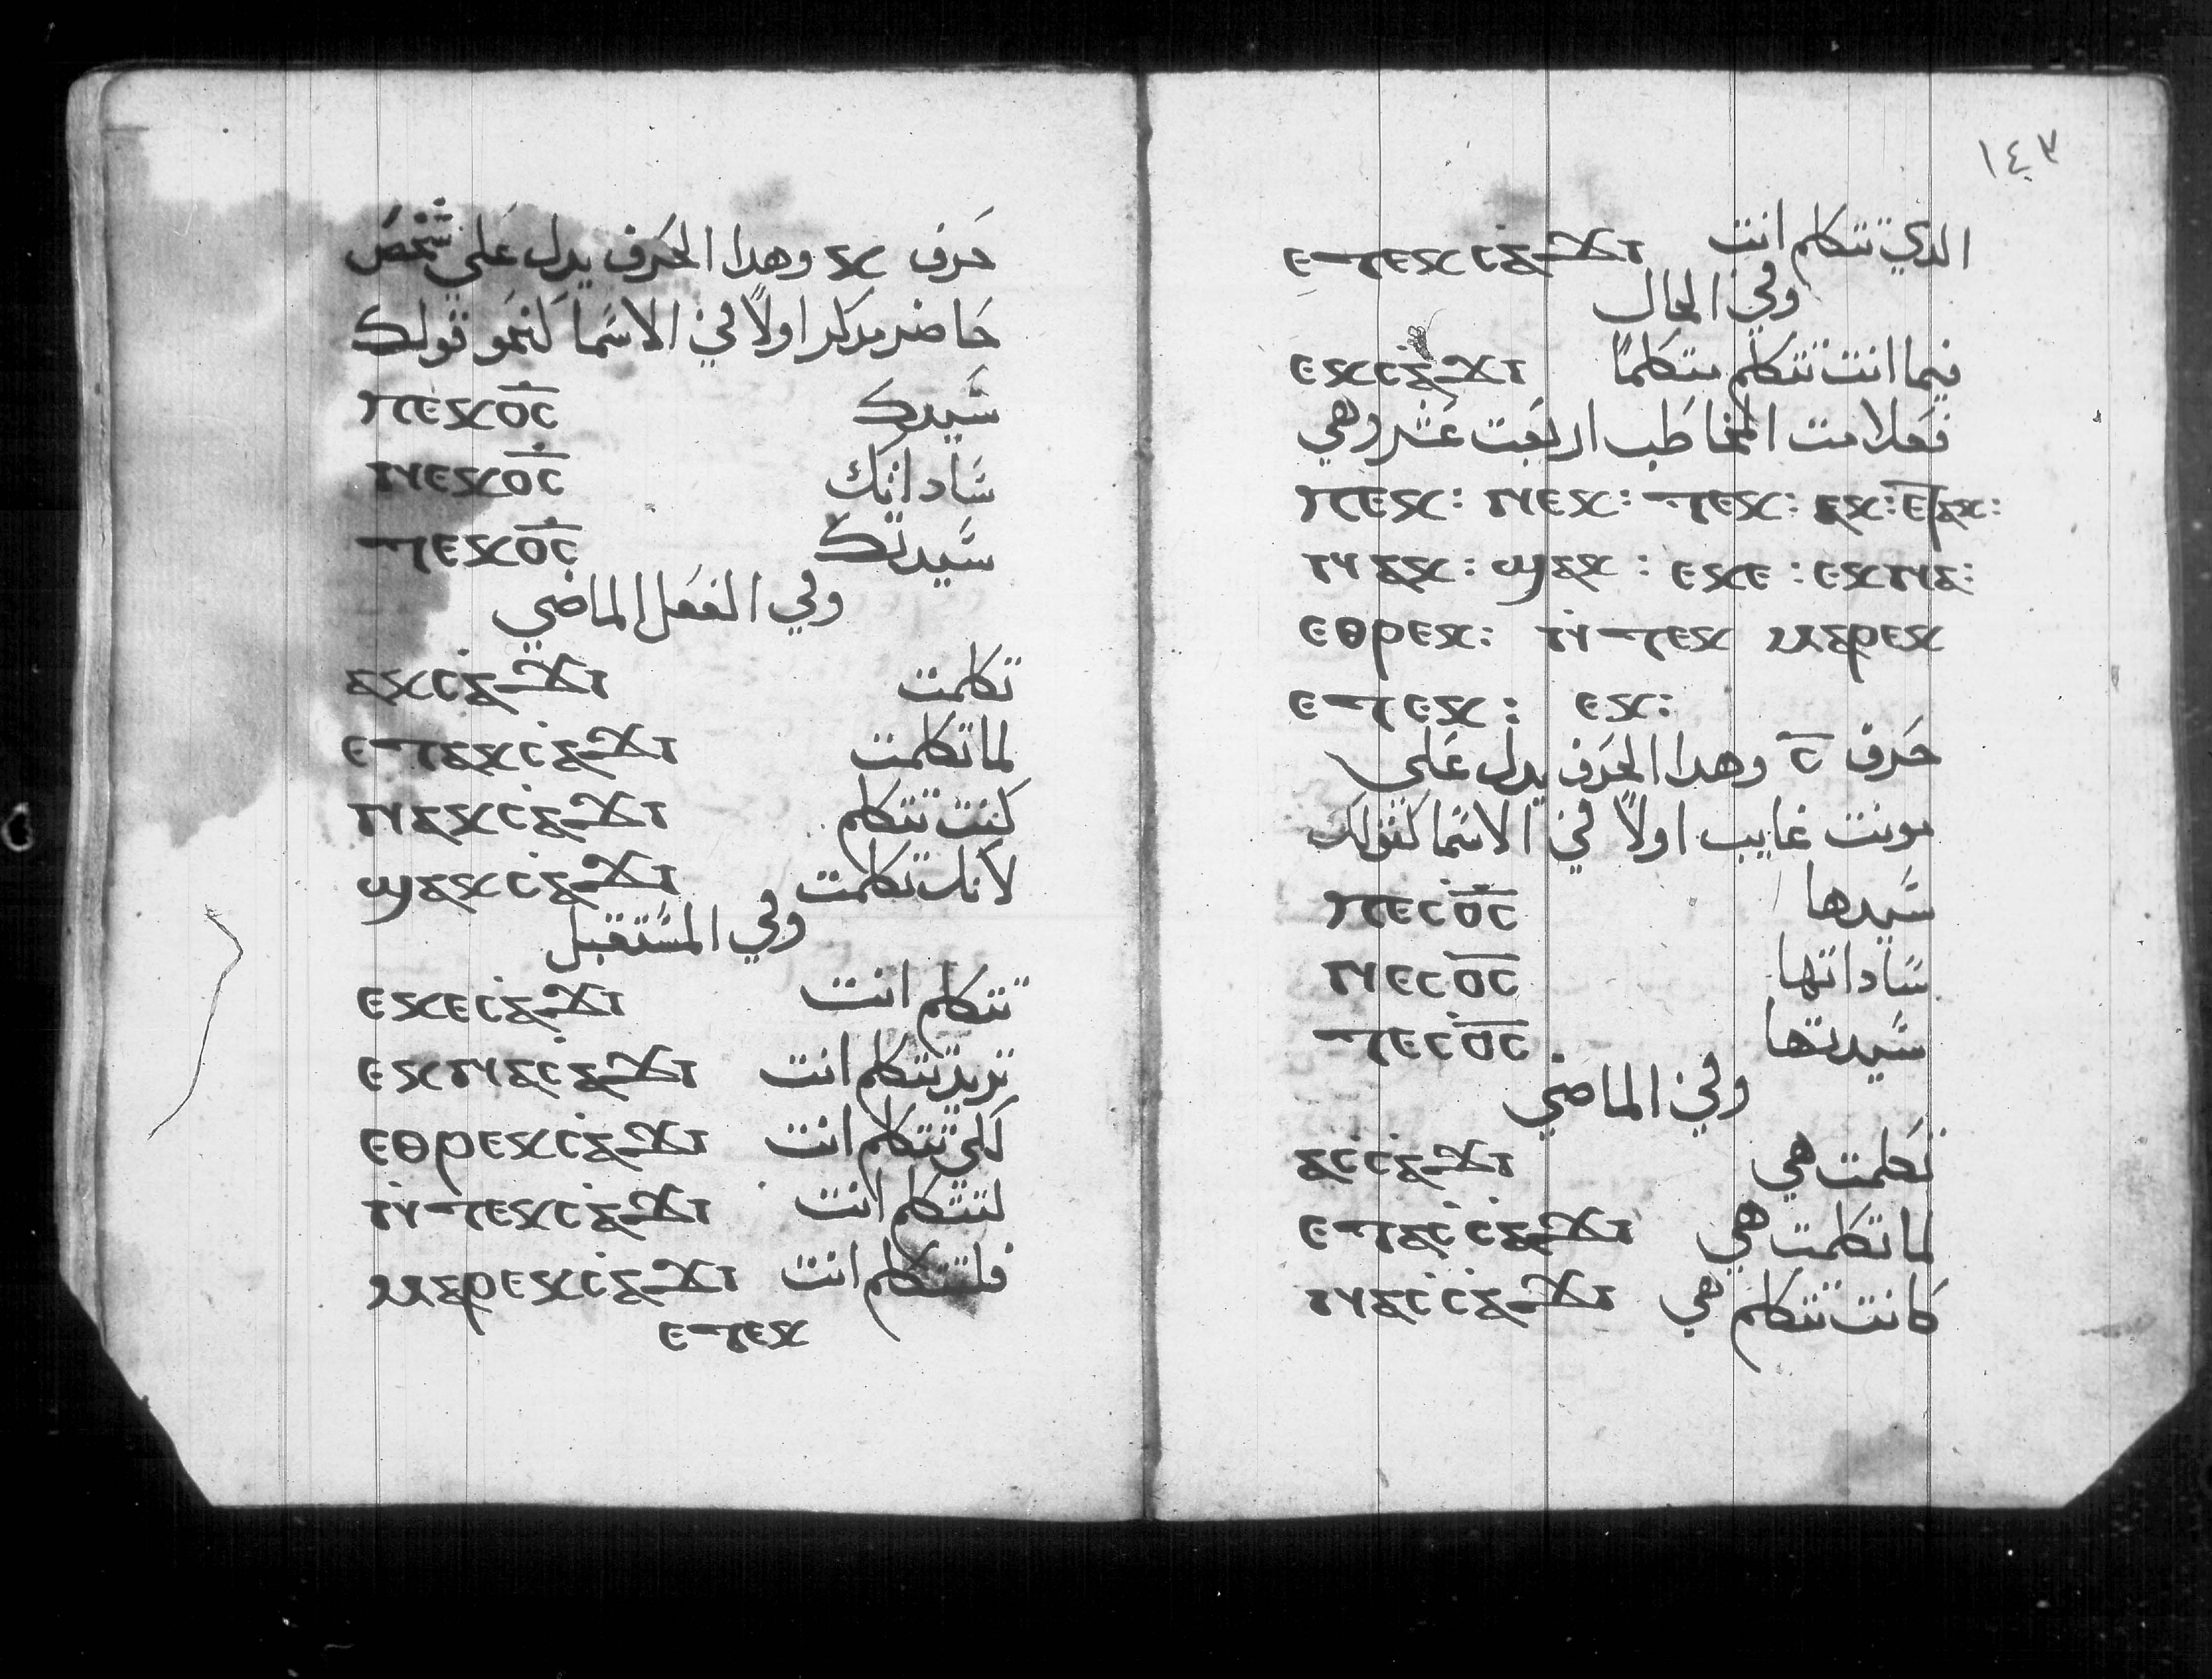 حرف ⲕ وهدا الحرف يدل علي شخص
حاضر مدكر اولاً في الاسما كنحو قولك
سيدك ⲡⲉⲕⲟ̅ⲥ̅
ساداتك ⲛⲉⲕⲟ̅ⲥ̅
سيدتك ⲧⲉⲕⲟ̅ⲥ̅
وفي الفعل الماضي
تكلمت ⲁⲕⲥⲁϫⲓ
لما تكلمت ⲉⲧⲁⲕⲥⲁϫⲓ
كنت تتكلم ⲛⲁⲕⲥⲁϫⲓ
لانك تكلمت ϣⲁⲕⲥⲁϫⲓ
وفي المستقبل
تتكلم انت ⲉⲕⲉⲥⲁϫⲓ
تريد تتكلم انت ⲉⲕⲛⲁⲥⲁϫⲓ
لكي تتكلم انت ⲉⲑⲣⲉⲕⲥⲁϫⲓ
لتتكلم انت ⲛ̀ⲧⲉⲕⲥⲁϫⲓ
فلتتكلم انت ⲙⲁⲣⲉⲕⲥⲁϫⲓ
ⲉⲧⲉⲕ
١٤٣
الدي تتكلم انت ⲉⲧⲉⲕⲥⲁϫⲓ
وفي الحال
فيما انت تتكلم متكلماً ⲉⲕⲥⲁϫⲓ
فعلامت المخاطب اربعت عشر وهي
ⲡⲉⲕ: ⲛⲉⲕ: ⲧⲉⲕ: ⲁⲕ: ⲉⲧⲁⲕ:
ⲛⲁⲕ: ϣⲁⲕ: ⲉⲕⲉ: ⲉⲕⲛⲁ:
ⲉⲑⲣⲉⲕ: ⲛ̀ⲧⲉⲕ ⲙⲁⲣⲉⲕ
ⲉⲧⲉⲕ: ⲉⲕ:
حرف ⲥ̅ وهدا الحرف يدل علي
مونت غايب اولاً في الاسما كقولك
سيدها ⲡⲉⲥⲟ̅ⲥ̅
ساداتها ⲛⲉⲥⲟ̅ⲥ̅
سيدتها ⲧⲉⲥⲟ̅ⲥ̅
وفي الماضي
تكلمت هي ⲁⲥⲥⲁϫⲓ
لما تكلمت هي ⲉⲧⲁⲥⲥⲁϫⲓ
كانت تتكلم هي ⲛⲁⲥⲥⲁϫⲓ